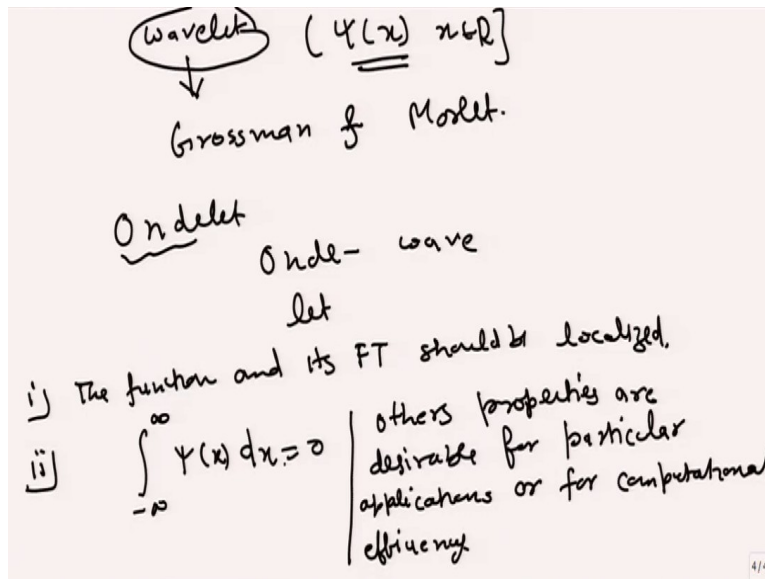 Wavelet ( Ψ(x) x∈R ]
Grossman & Morlet.
Ondelet
Onde - wave
let
i) The function and its FT should be localized.
ii) ∫_{-∞}^{∞} Ψ(x) dx = 0
others properties are
desirable for particular
applications or for computational
efficiency
4/4